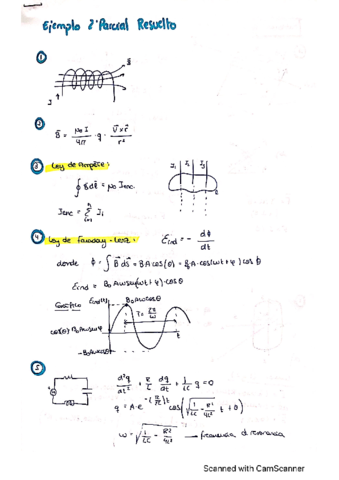 Ejemplo 2º Parcial Resuelto
①
B
I
②
B⃗ = μ₀ I / 4π · q · v⃗ x r⃗ / r²
③ Ley de Ampère:
I₁ I₂ I₃
∮ B⃗ dℓ⃗ = μ₀ Ienc.
Ienc = Σ Iᵢ
i=1
④ Ley de Faraday-Lenz: εind = - dΦ / dt
donde Φ = ∫ B⃗ dS⃗ = B A cos(θ) = B₀ A · cos(ωt + φ) cos θ
εind = B₀ A ω sin(ωt + φ) · cos θ
Gráfico
B₀Aωcosθ
T = 2π / ω
cos(θ) B₀Aωsinφ
t
-B₀Aωcosθ
⑤
d²q / dt² + R / L dq / dt + 1 / LC q = 0
q = A · e^-(R/2L)t cos(√(1/LC - R²/4L²) t + θ)
ω = √(1/LC - R²/4L²) → frecuencia d resonancia
Scanned with CamScanner